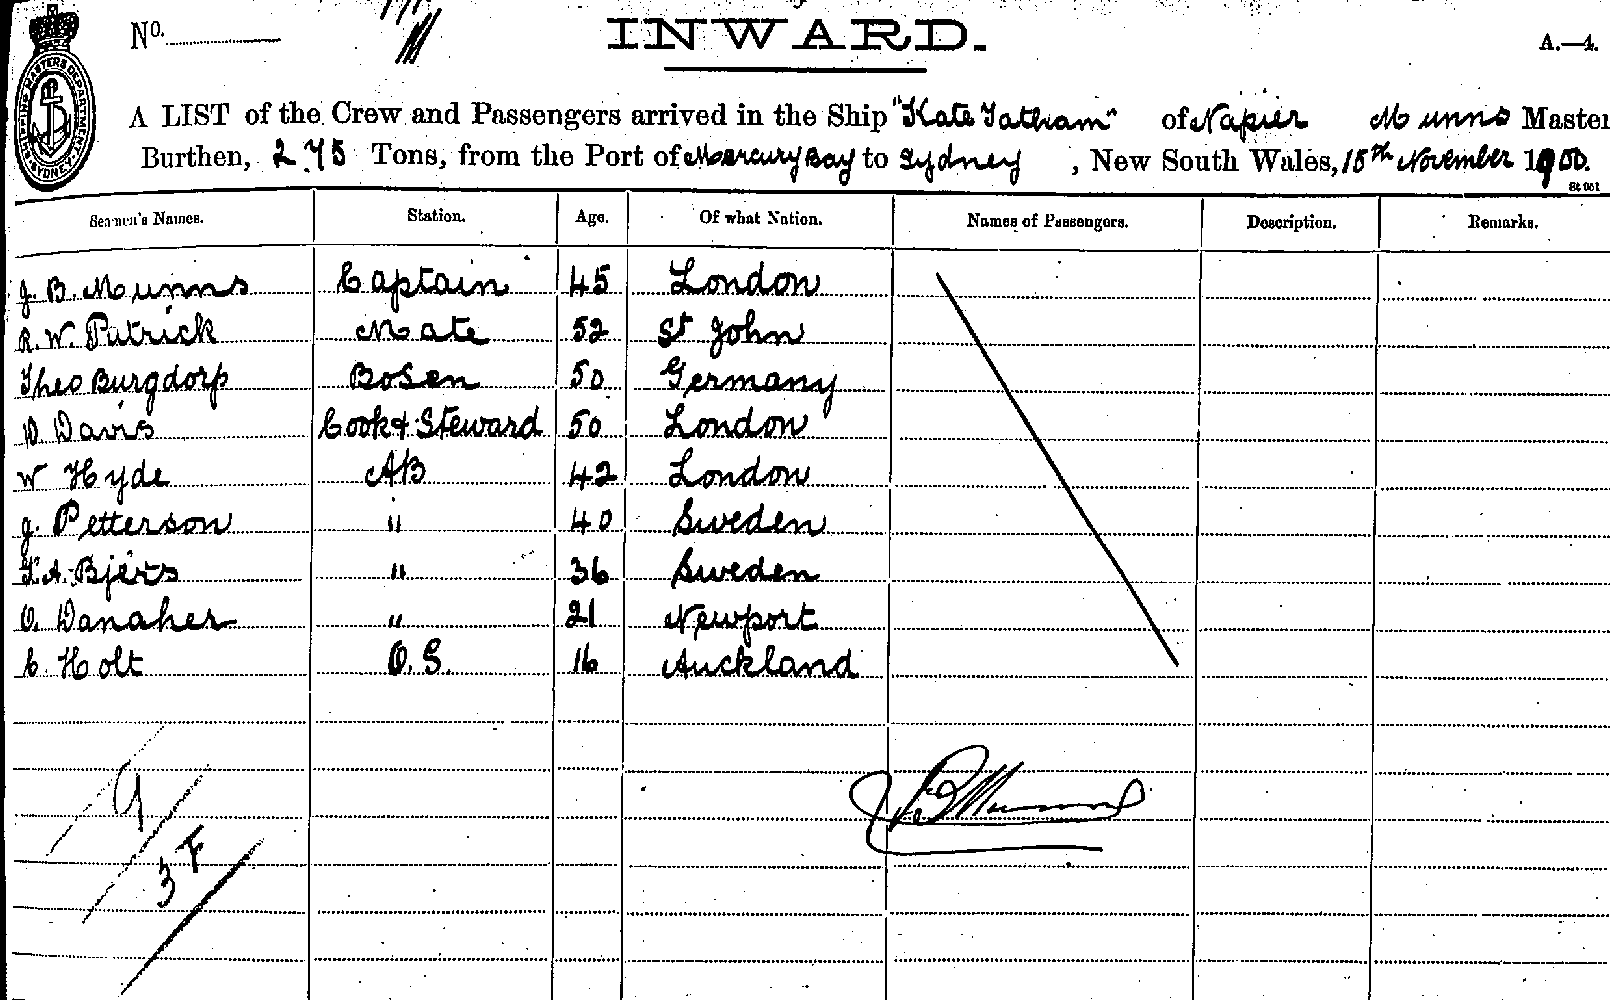 No.
INWARD.
A.—4.
SHIPPING MASTERS DEPARTMENT SYDNEY
A LIST of the Crew and Passengers arrived in the Ship "Kate Tatham" of Napier Munns Master
Burthen, 275 Tons, from the Port of Mercury Bay to Sydney, New South Wales, 15th November 1900.
Seamen's Names. Station. Age. Of what Nation. Names of Passengers. Description. Remarks.
J. B. Munns Captain 45 London
R. W. Patrick Mate 52 St John
Theo Burgdorp Bosen 50 Germany
D Davis Cook & Steward 50 London
W Hyde AB 42 London
J. Petterson " 40 Sweden
Bjers " 36 Sweden
O. Danaher " 21 Newport
C. Holt O.S. 16 Auckland
9
J B Munns
3 F